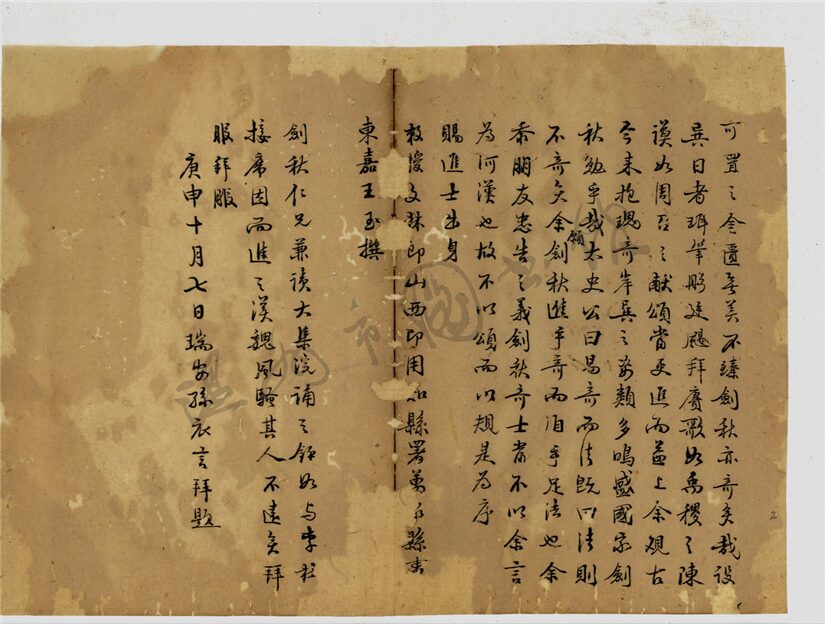 可置之奩匳無美不臻劍秋亦奇矣哉設
異日者珥筆彤廷颺拜賡歌如禹稷之陳
謨如周召之獻頌當更進而益上余觀古
今来抱瑰奇岸異之姿類多鳴盛國家劍
秋勉乎哉太史公曰易奇而法既曰法則
不奇矣余願劍秋進乎奇而泊乎足法也余
忝朋友忠告之義劍秋奇士當不以余言
為河漢也故不以頌而以規是為序
賜進士出身
敕授文林郎山西即用知縣署
東嘉王玉撰
劍秋仁兄兼讀大集浣誦之餘如與李杜
接席因而進之漢魏風騷其人不遠矣拜
服拜服
庚申十月七日瑞安孫衣言拜題